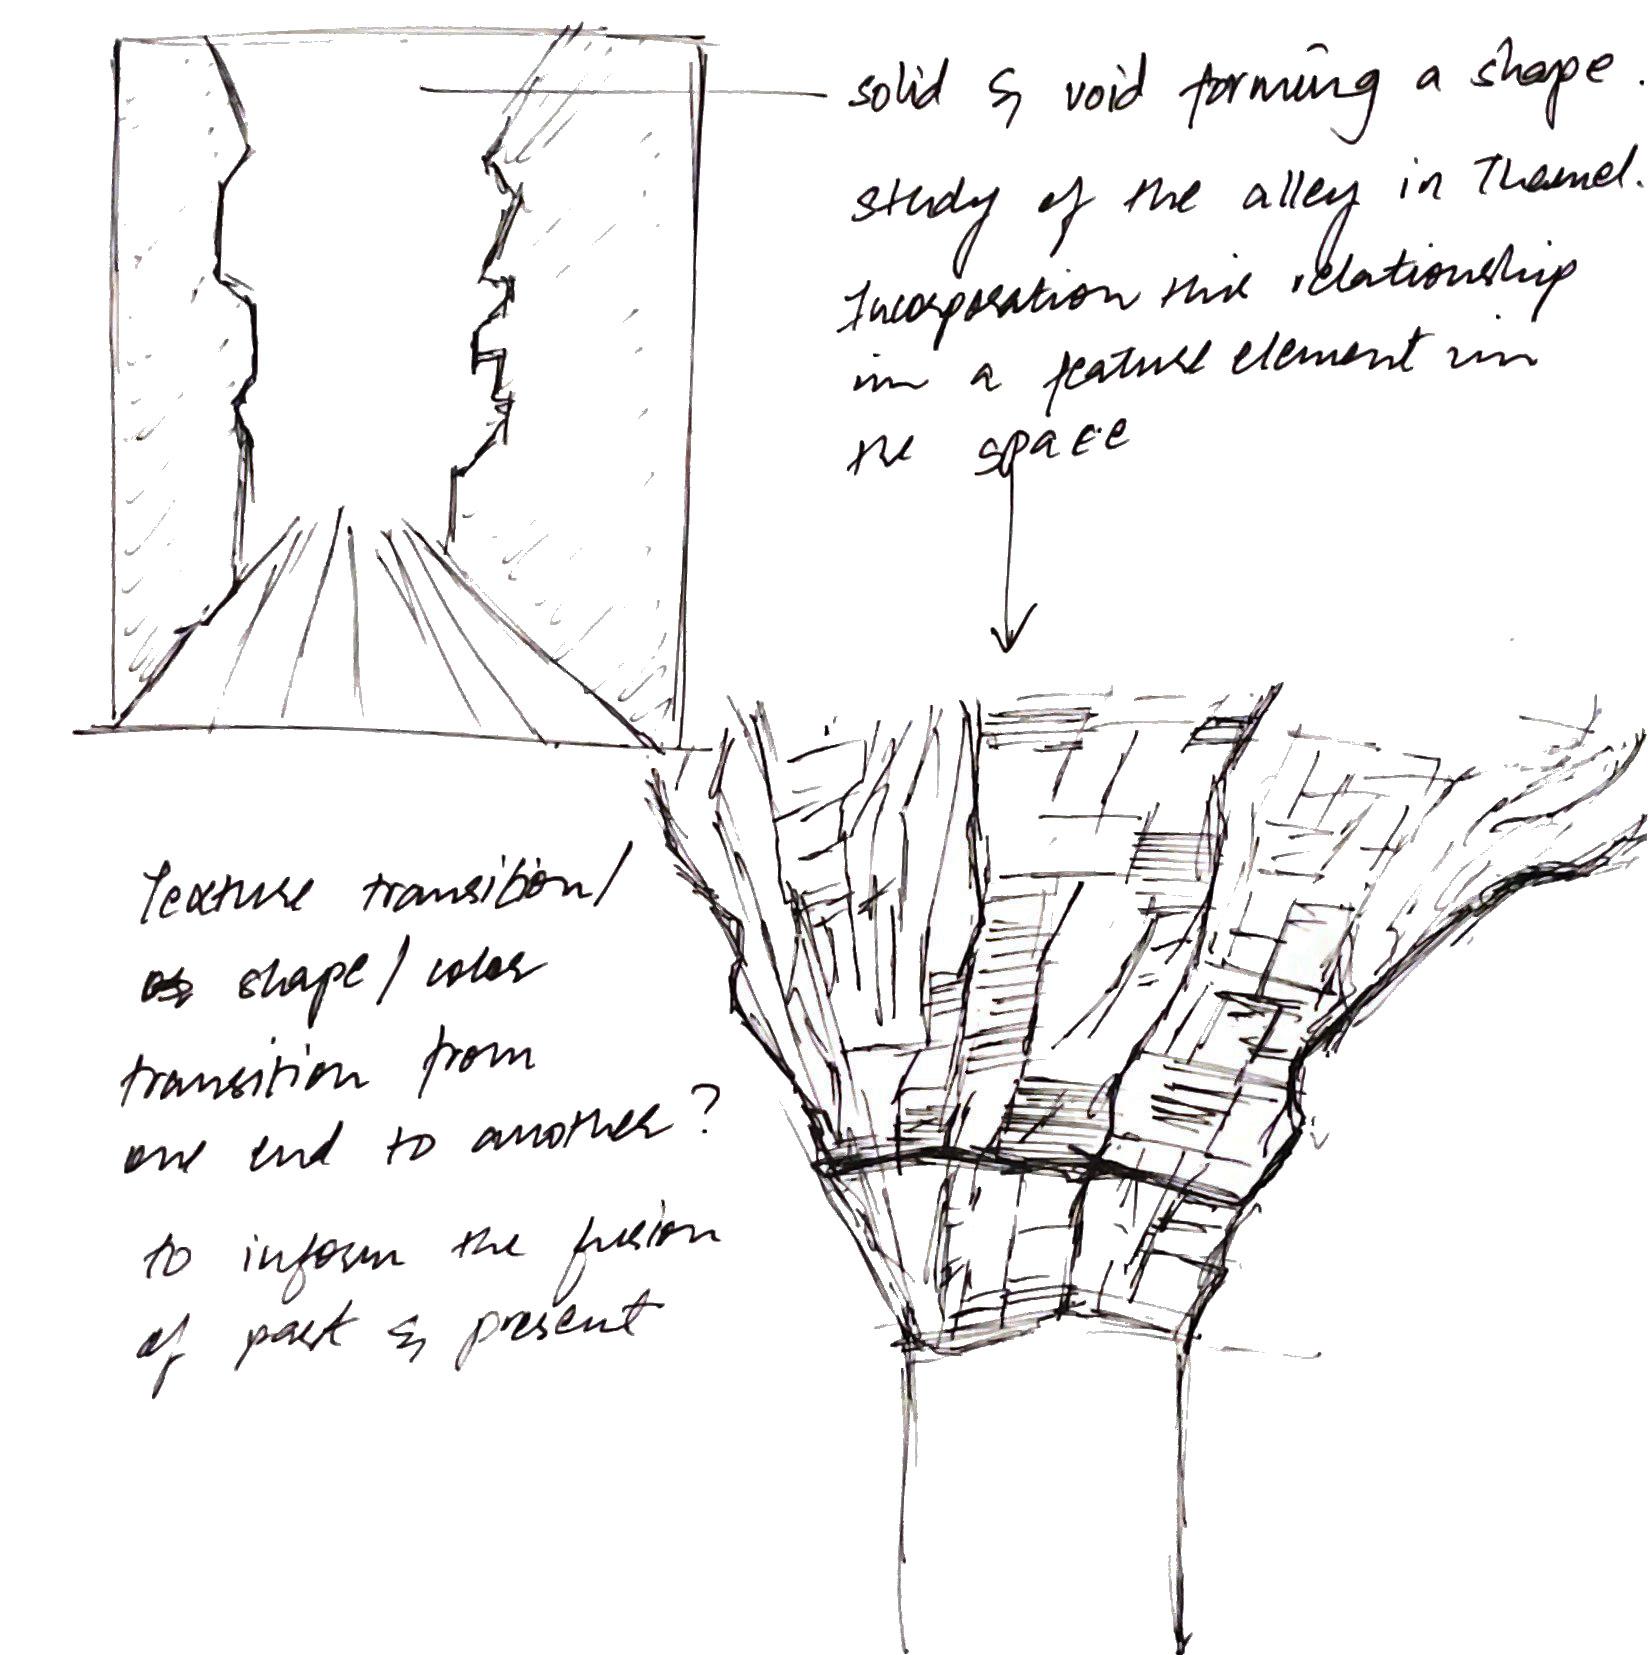 solid & void forming a shape.
study of the alley in Thamel.
Incorporation this relationship
in a feature element in
the space
Texture transition/
or shape/color
transition from
one end to another?
to inform the fusion
of past & present